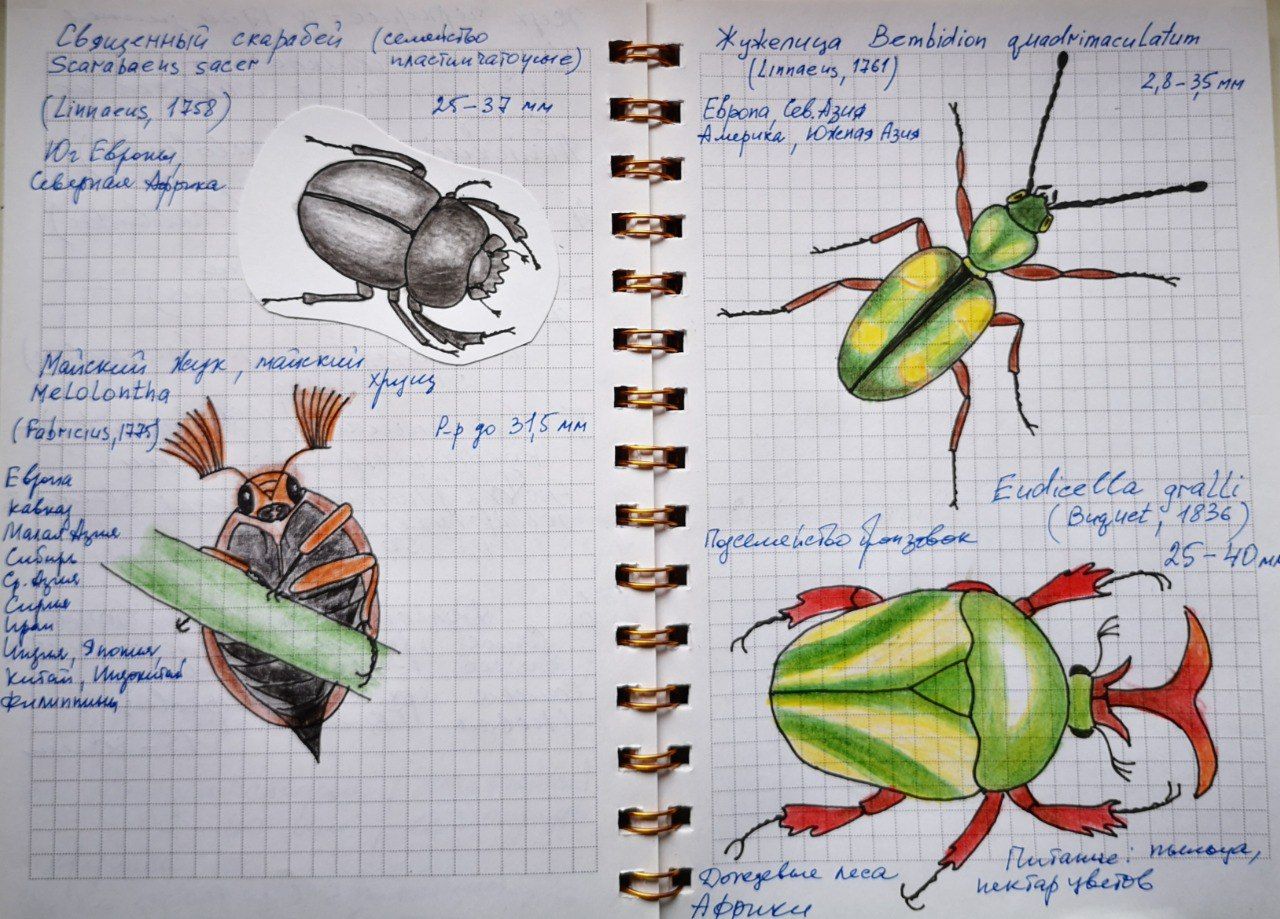 Священный скарабей (семейство
Scarabaeus sacer пластинчатоусые)
(Linnaeus, 1758) 25-37 мм
Юг Европы,
Северная Африка
Майский жук, майский
хрущ
Melolontha
(Fabricius, 1775) Р-р до 31,5 мм
Европа
Кавказ
Малая Азия
Сибирь
Ср. Азия
Сирия
Иран
Индия, Япония,
Китай, Индокитай
Филиппины
Жужелица Bembidion quadrimaculatum
(Linnaeus, 1761) 2,8-3,5 мм
Европа, Сев. Азия
Америка, Южная Азия
Eudicella gralli
(Buquet, 1836)
Подсемейство бронзовок
25-40 мм
Дождевые леса
Африки
Питание: пыльца,
нектар цветов